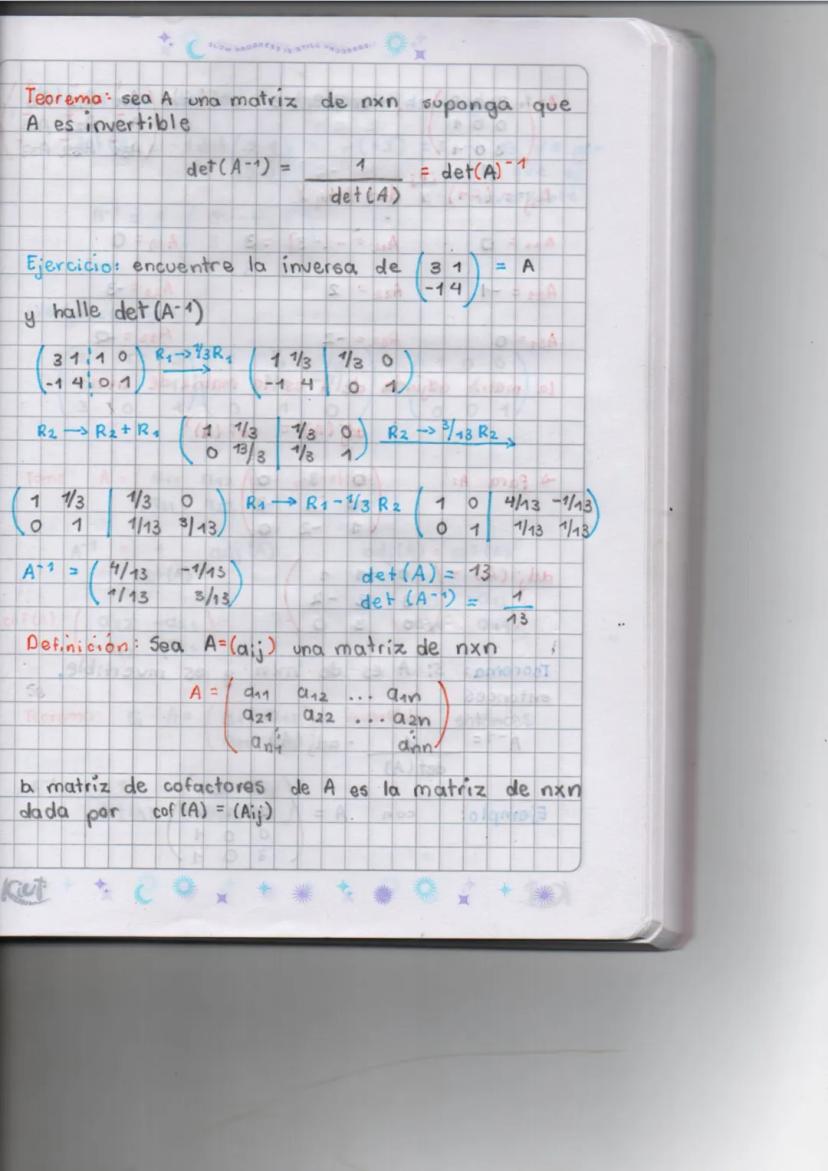 SLOW PROGRESS IS STILL PROGRESS
Teorema: sea A una matriz de nxn suponga que
A es invertible
det(A⁻¹) = 1/det(A) = det(A)⁻¹
Ejercicio: encuentre la inversa de (3 1 / -1 4) = A
y halle det(A⁻¹)
(3 1 | 1 0 / -1 4 | 0 1) R₁→1/3R₁ (1 1/3 | 1/3 0 / -1 4 | 0 1)
R₂ → R₂ + R₁ (1 1/3 | 1/3 0 / 0 13/3 | 1/3 1) R₂ → 3/13 R₂
(1 1/3 | 1/3 0 / 0 1 | 1/13 3/13) R₁ → R₁ - 1/3 R₂ (1 0 | 4/13 -1/13 / 0 1 | 1/13 1/13)
A⁻¹ = (4/13 -1/13 / 1/13 3/13) det(A) = 13
det(A⁻¹) = 1/13
Definición: Sea A=(aij) una matriz de nxn
A = (a11 a12 ... a1n
a21 a22 ... a2n
an1 ann)
la matriz de cofactores de A es la matriz de nxn
dada por cof(A) = (Aij)
Kiut